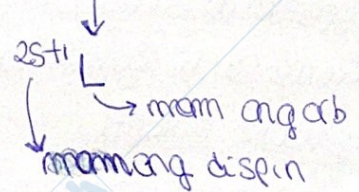 2S+1
L
mom ang orb
mom ang di spin